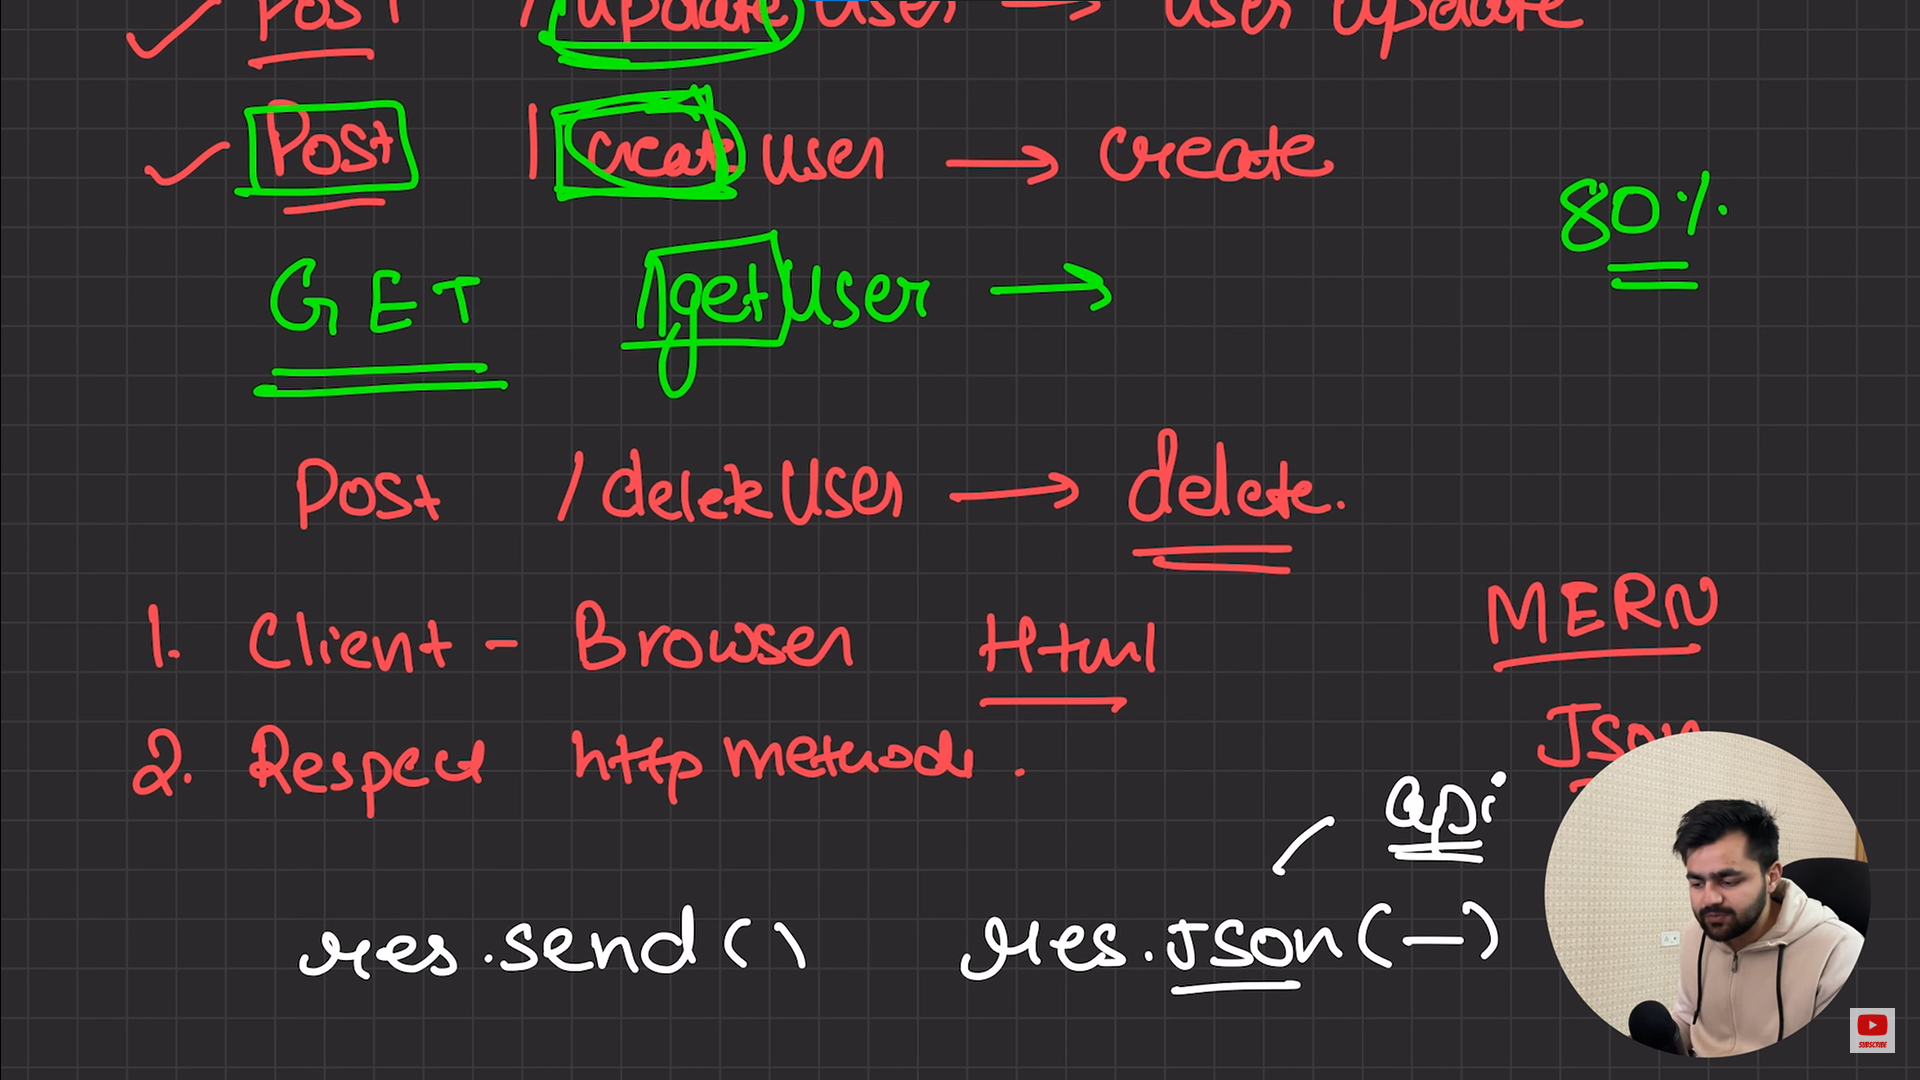 Post /update user → user update
Post /create user → create
80%
GET /get user →
Post /delete user → delete.
1. Client - Browser Html
MERN
2. Respect http methods.
Json
api
res.send() res.Json(-)
SUBSCRIBE